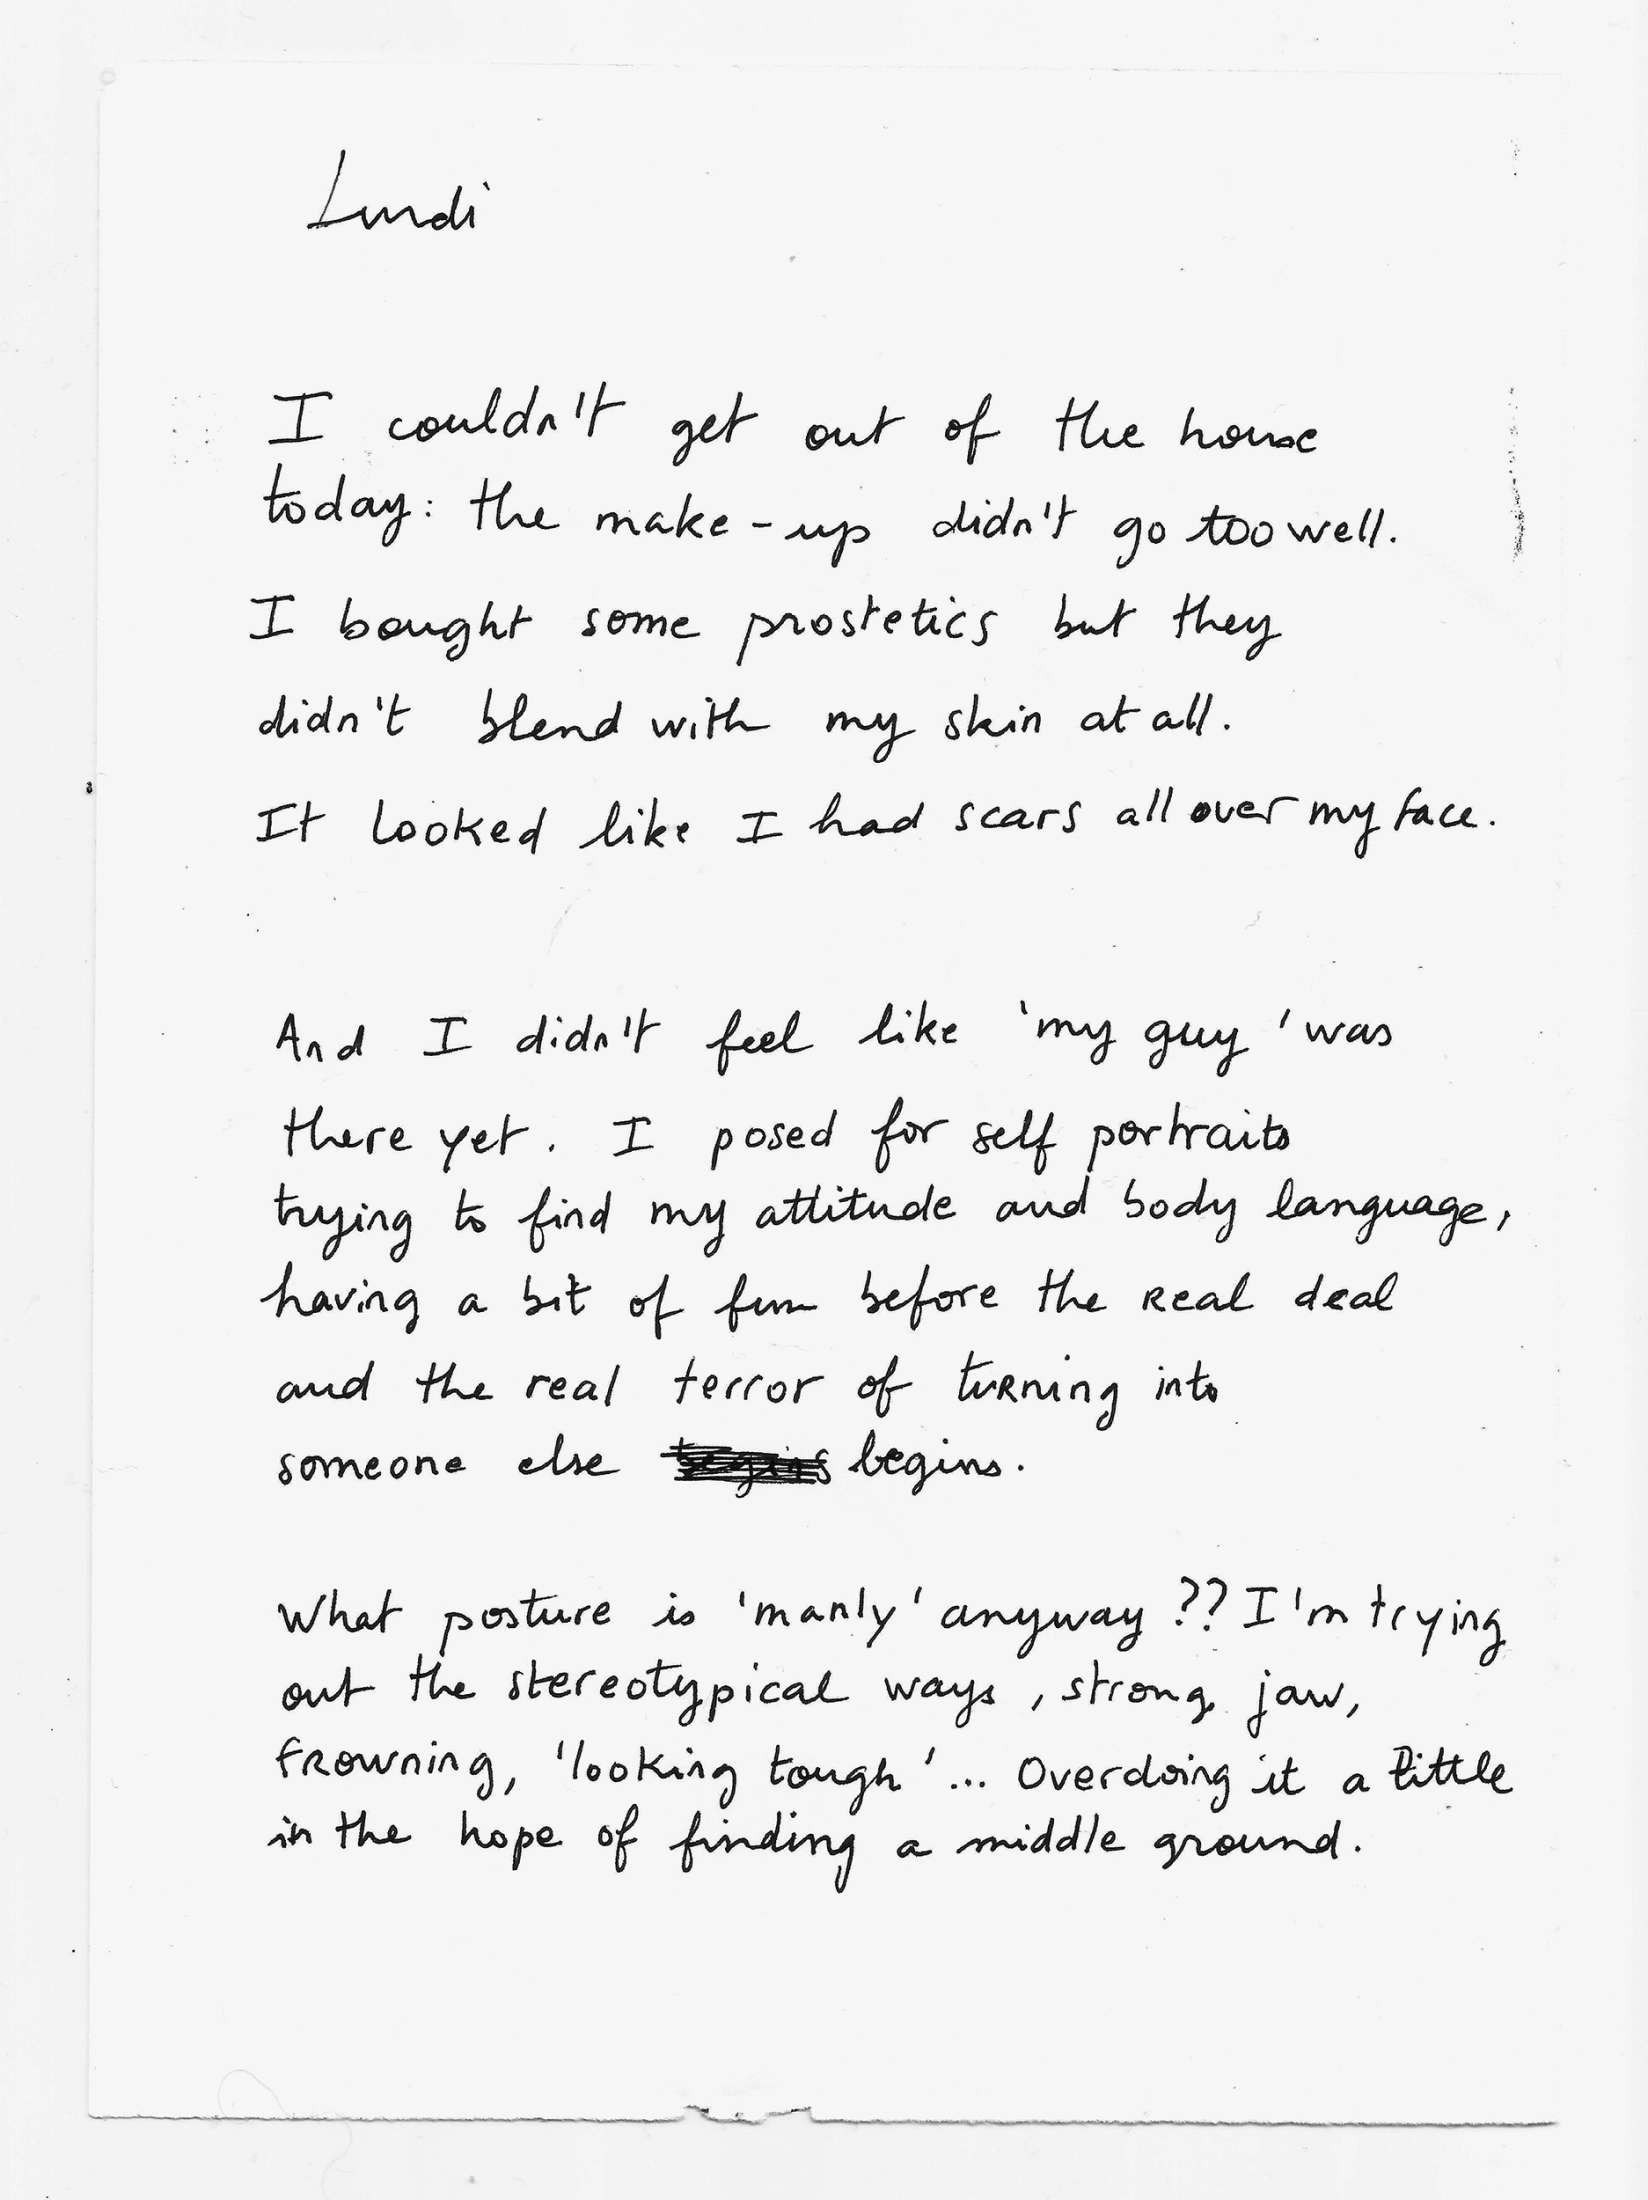 Lundi
I couldn't get out of the house
today: the make-up didn't go too well.
I bought some prostetics but they
didn't blend with my skin at all.
It looked like I had scars all over my face.
And I didn't feel like 'my guy' was
there yet. I posed for self portraits
trying to find my attitude and body language,
having a bit of fun before the real deal
and the real terror of turning into
someone else begins begins.
What posture is 'manly' anyway ?? I'm trying
out the stereotypical ways, strong jaw,
frowning, 'looking tough'... Overdoing it a little
in the hope of finding a middle ground.